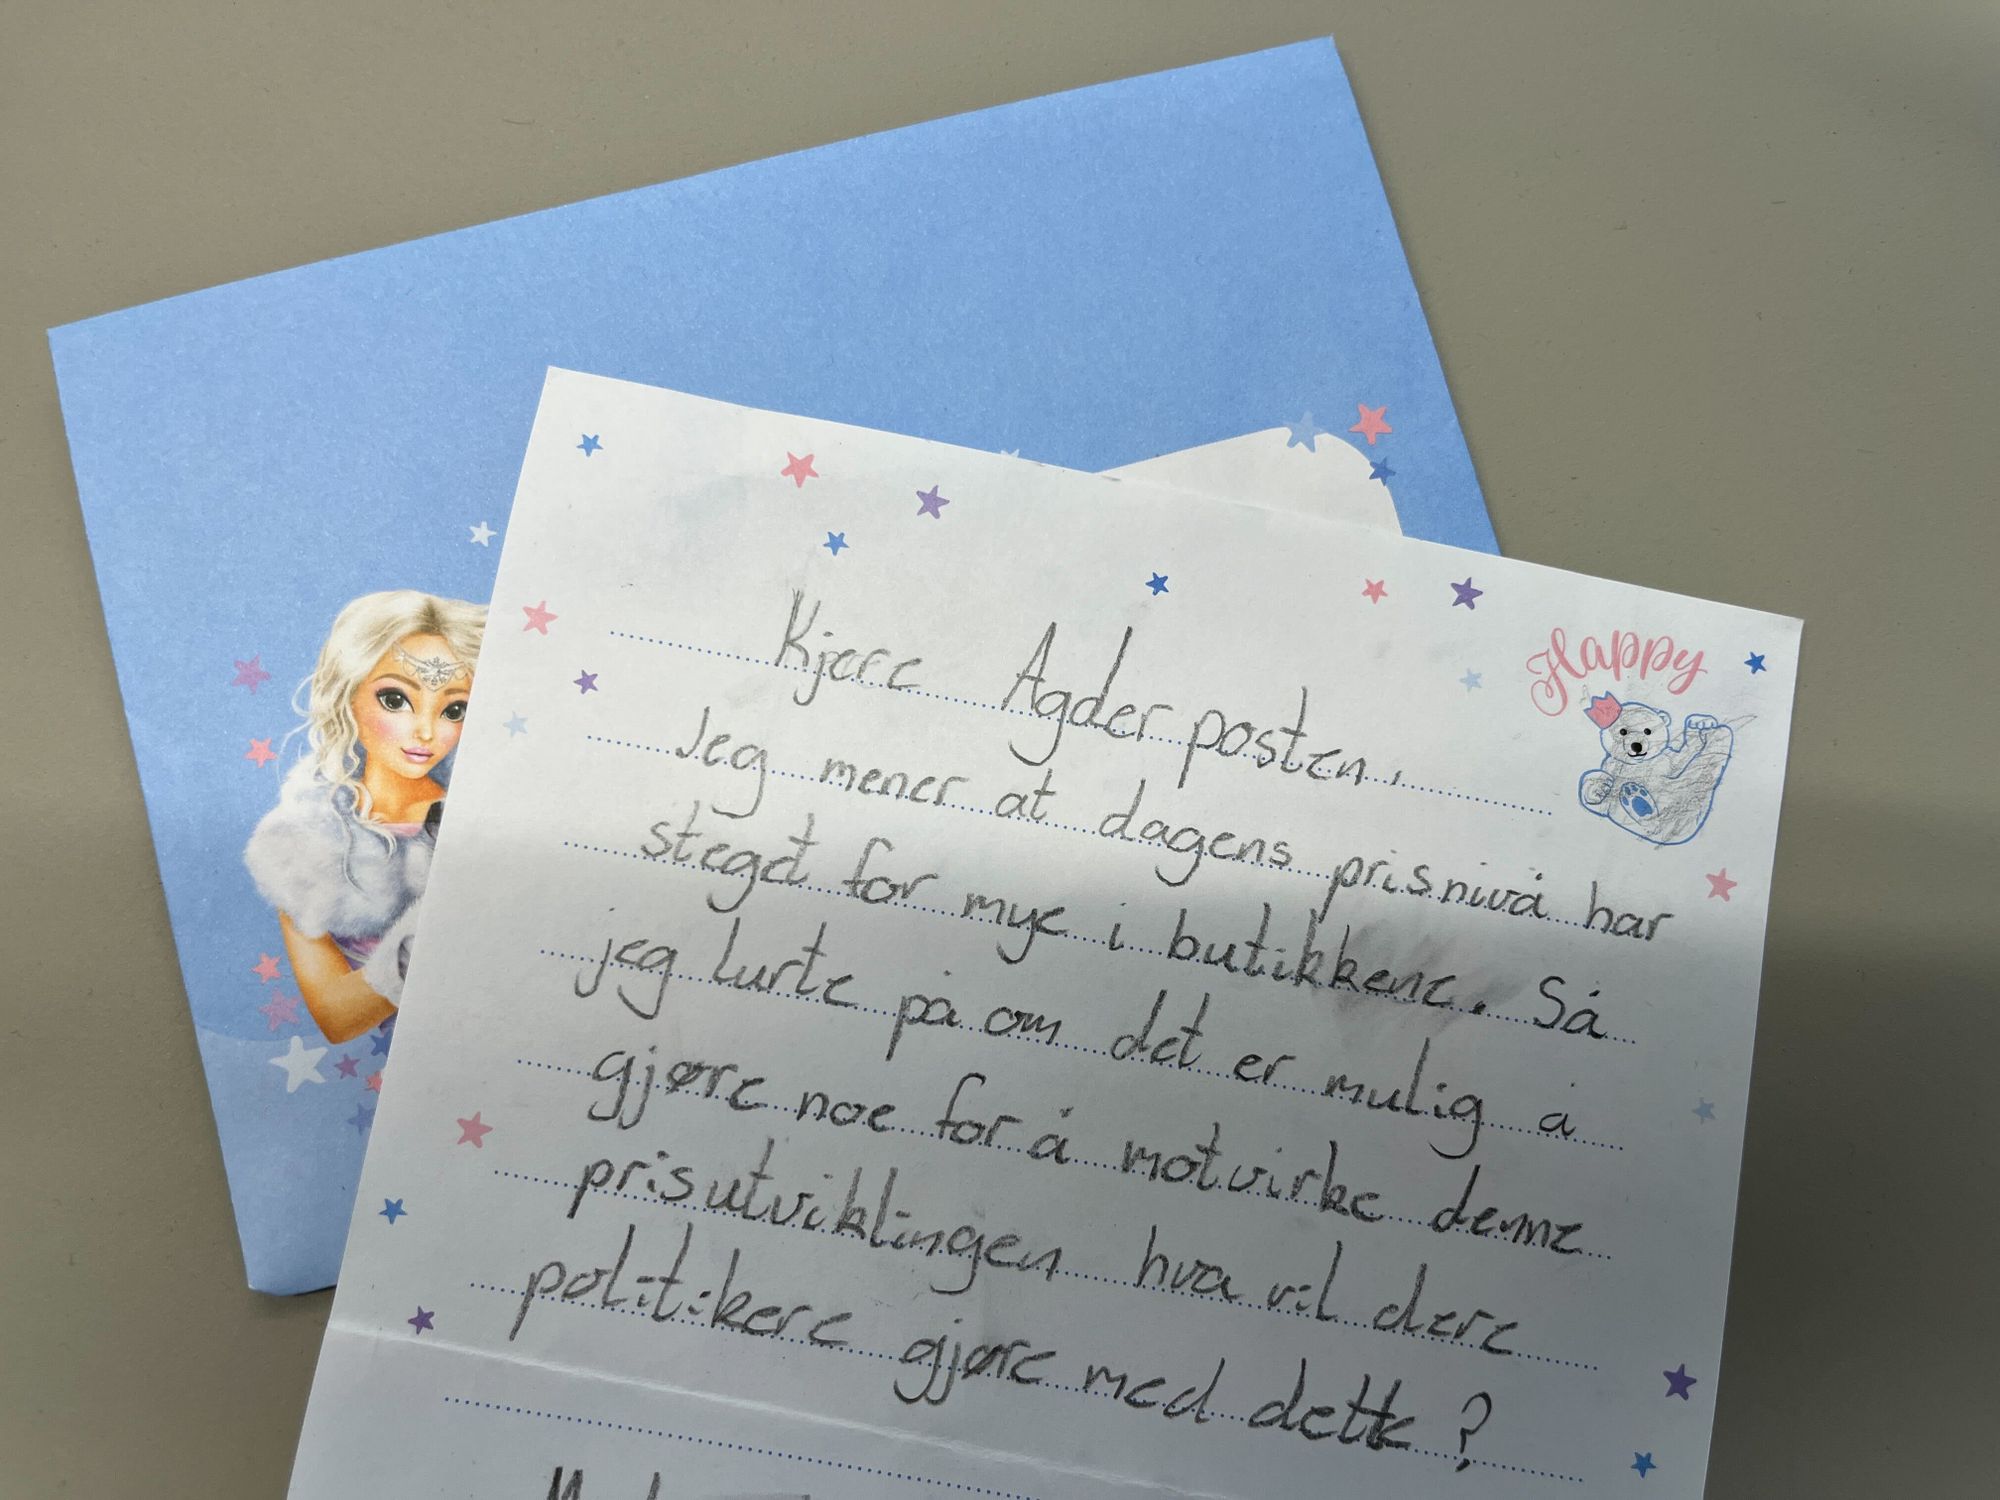 Happy
Kjere Agderposten.
Jeg mener at dagens prisnivå har
steget for mye i butikkene. Så
jeg lurte på om det er mulig å
gjøre noe for å motvirke denne
prisutviklingen hva vil dere
politikere gjøre med dette?